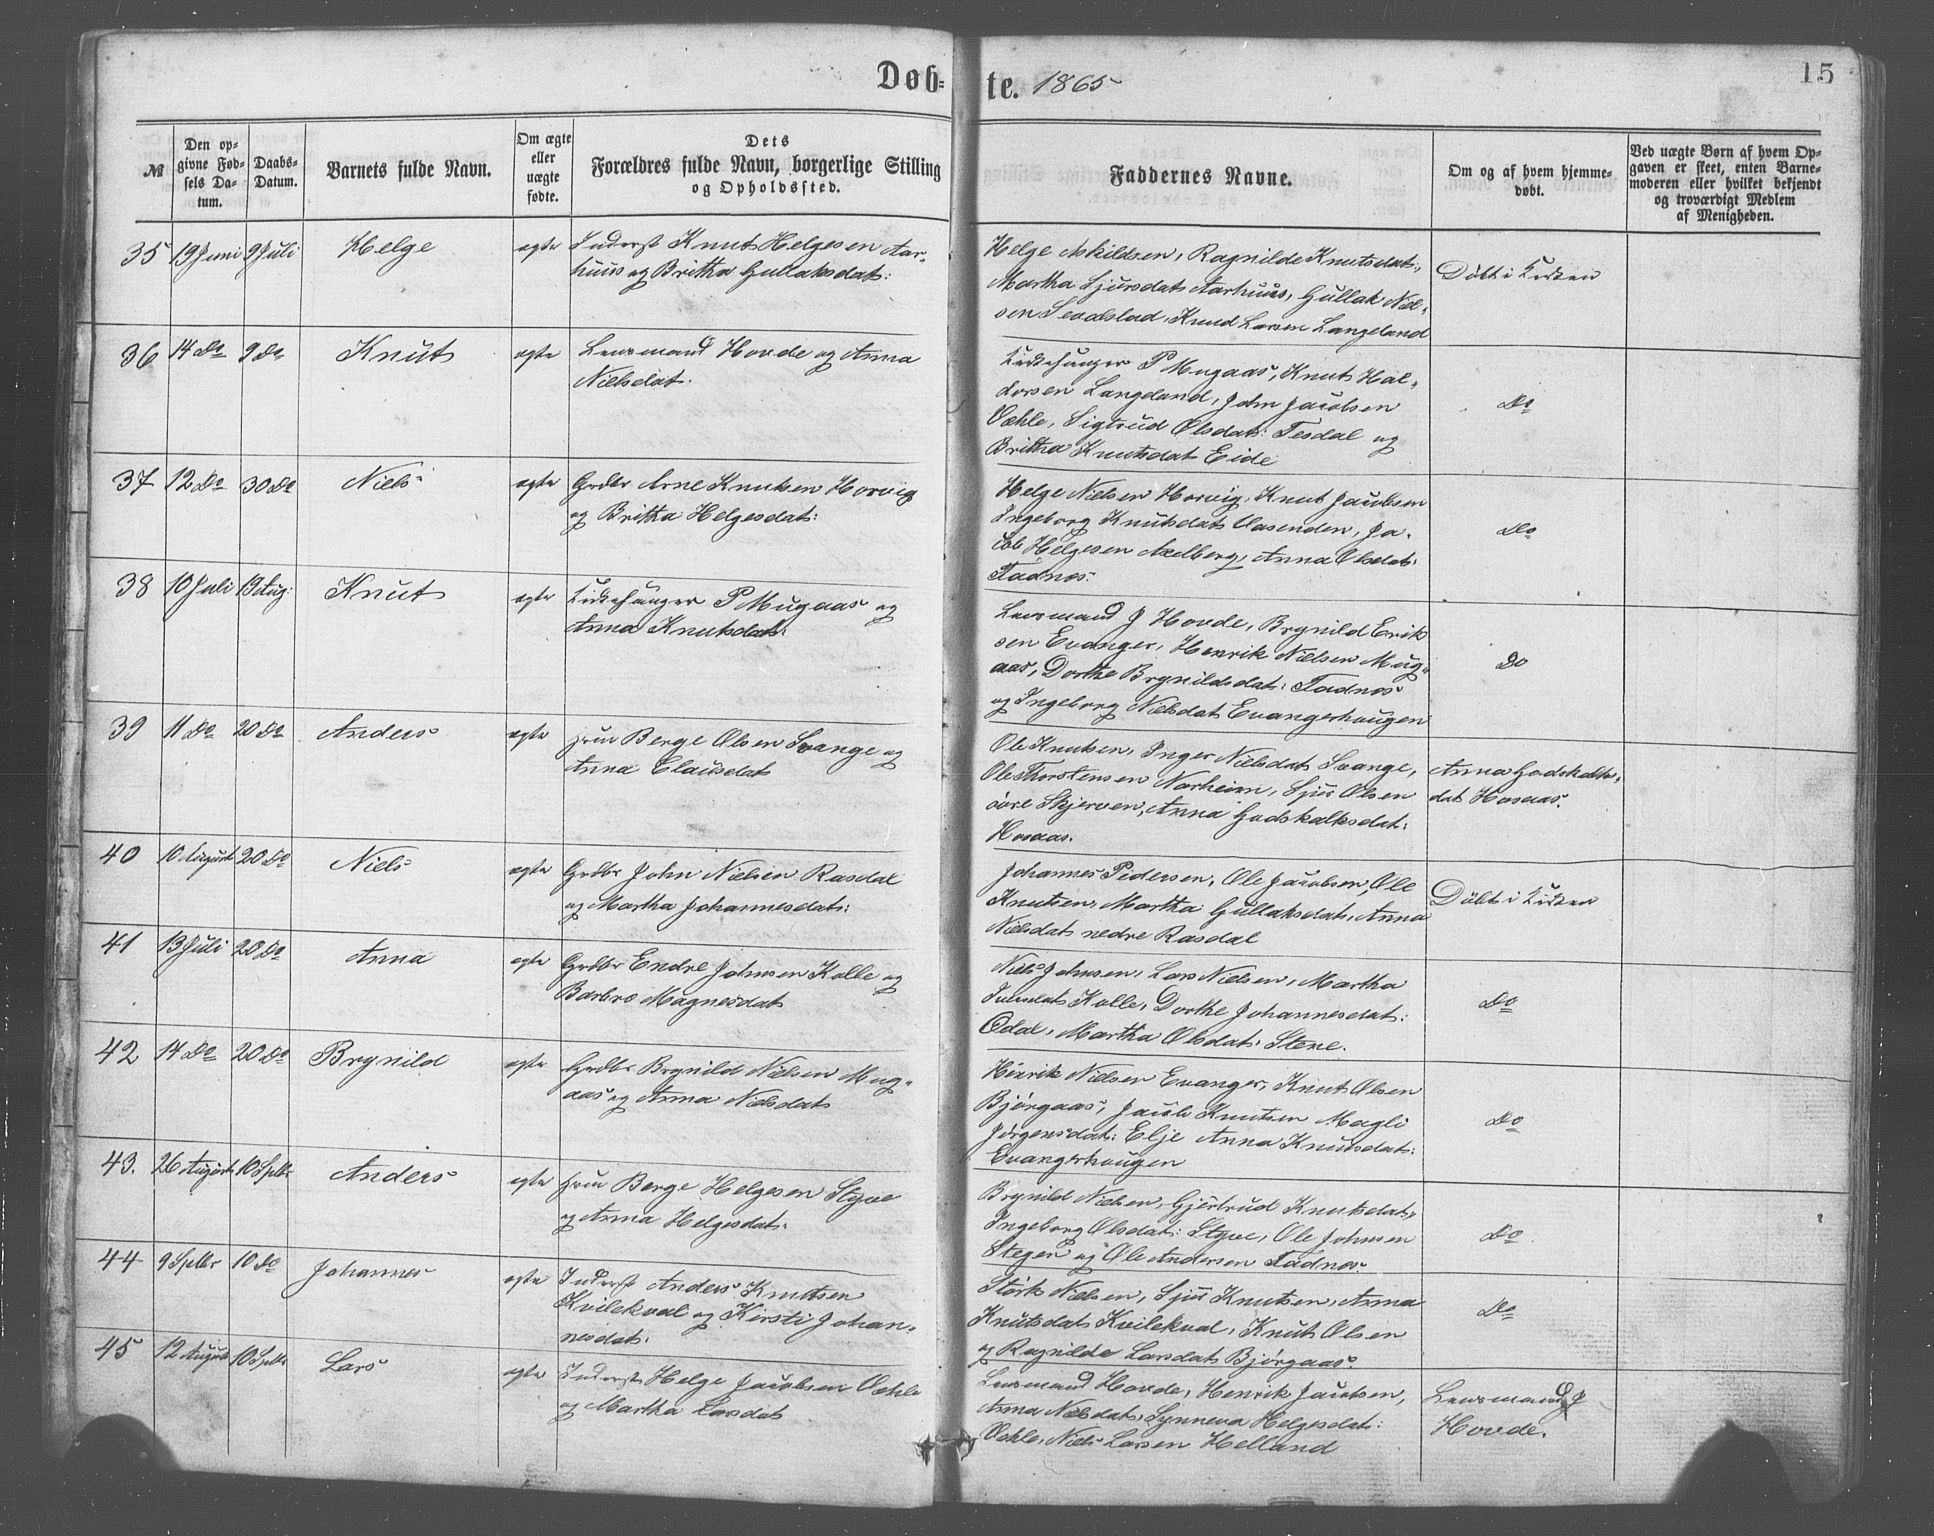 Døb-
te. 1865
15
№
Den op-
givne Fød-
sels Da-
tum.
Daabs-
Datum.
Barnets fulde Navn.
Om ægte
eller
uægte
fødte.
Dets
Forældres fulde Navn, borgerlige Stilling
og Opholdssted.
Faddernes Navne.
Om og af hvem hjemme-
døbt.
Ved uægte Børn af hvem Op-
gaven er skeet, enten Barne-
moderen eller hvilket bekjendt
og troværdigt Medlem
af Menigheden.
35 19 Juni 9 Juli Helge ægte Inderst Knut Helgesen Aar-
huus og Britha Gullaksdat:
Helge Askildsen, Ragnilde Knutsdat:,
Martha Sjursdat Aarhuus, Gullak Niel-
sen Knud Larsen Langeland
Döbt i Kirken
36 14 Do 9 Do Knut ægte Lensmand Hovde og Anna
Nielsdat.
Kirkesanger P Mugaas, Knut Hal-
dorsen Langeland, John Jacobsen
Væhle, Sigtrud Olsdat: Tesdal og
Britha Knutsdat Eide
Do
37 12 Do 30 Do Niels ægte Grdbr Arne Knutsen Horvig
og Britha Helgesdat:
Helge Nielsen Horvig, Knut Jacobsen
Ingeborg Knutsdat Vasenden, Ja-
cob Helgesen Axelberg, Anna Olsdat:
Fadnes.
Do
38 10 Juli 19 Aug: Knut ægte Kirkesanger P Mugaas og
Anna Knutsdat:
Lensmand J Hovde, Brynild Erik
sen Evanger, Henrik Nielsen Mug-
aas, Dorthe Brynildsdat: Fadnes
og Ingeborg Nielsdat Evangerhaugen
Do
39 11 Do 20 Do Anders ægte Huu Berge Olsen Svange og
Anna Clausdat
Ole Knutsen, Inger Nielsdat Svange,
Ole Thorstensen Norheim, Sjur Olsen
övre Skjerven, Anna Godskalksdat:
Hosaas.
Anna Godskalks-
dat Hosaas.
40 10 August 20 Do Niels ægte Grdbr John Nielsen Rasdal
og Martha Johannesdat:
Johannes Pedersen, Ole Jacobsen, Ole
Knutsen, Martha Gullaksdat, Anna
Nielsdat nedre Rasdal
Döbt i Kirken
41 13 Juli 20 Do Anna ægte Grdbr Endre Johnsen Kolle og
Barbro Magnesdat
Niels Johnsen, Lars Nielsen, Martha
Kolle, Dorthe Johannesdat:
Odal, Martha Olsdat: Stene.
Do
42 14 Do 20 Do Brynild ægte Grdbr Brynild Nielsen Mug-
aas og Anna Nielsdat
Henrik Nielsen Evanger, Knut Olsen
Bjørgaas, Jacob Knutsen Magli
Jörgensdat: Elje Anna Knutsdat:
Evangerhaugen
Do
43. 26 August 10 Sptbr Anders ægte Huu Berge Helgesen Styve
og Anna Helgesdat:
Brynild Nielsen, Gjertrud Knutsdat:,
Ingeborg Olsdat: Styve, Ole Johnsen
Stegen og Ole Andersen Fadnes.
Do
44 9 Sptbr 10 Do Johannes ægte Inderst Anders Knutsen
Kvilekval og Kirsti Johan-
nesdat:
Störk Nielsen, Sjur Knutsen, Anna
Knutsdat Kvilekval, Knut Olsen
og Ragnilde Larsdat Bjørgaas.
Do
45 12 August 10 Sptbr Lars ægte Inderst Helge Jacobsen Væhle
og Martha Larsdat
Lensmand Hovde, Henrik Jacobsen,
Anna Nielsdat, Synneva Helgesdat:
Væhle, Niels Larsen Helland
Lensmand J
Hovde.